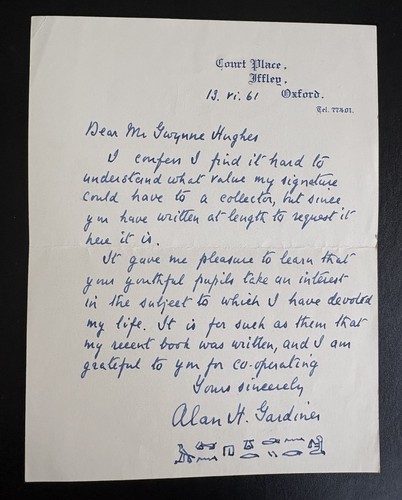 Court Place,
Iffley,
Oxford.
Tel. 77401.
13. vi. 61
Dear Mr Gwynne Hughes
I confess I find it hard to
understand what value my signature
could have to a collector, but since
you have written at length to request it
here it is.
It gave me pleasure to learn that
your youthful pupils take an interest
in the subject to which I have devoted
my life. It is for such as them that
my recent book was written, and I am
grateful to you for co-operating
Yours sincerely
Alan H. Gardiner